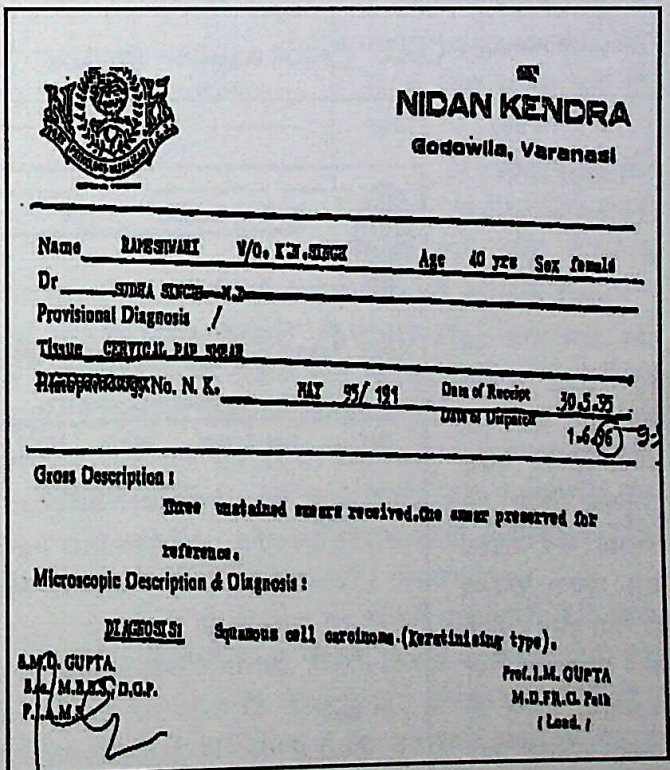 NIDAN KENDRA
Godowlia, Varanasi
Name RAMESHWARI W/O. K.N.SINGH Age 40 yrs Sex female
Dr SUDHA SINGH M.D
Provisional Diagnosis /
Tissue CERVICAL PAP SMEAR
Histopathology No. N. K. MAY 95/ 191 Date of Receipt 30.5.95
Date of Dispatch
1.6.96 95
Gross Description :
Three unstained smears received.One smear preserved for
reference.
Microscopic Description & Diagnosis :
DIAGNOSIS: Squamous cell carcinoma.(Keratinising type).
GUPTA
M.B.B.S., D.C.P.
Prof. I.M. GUPTA
M.D.FR.C. Path
( Lond. )